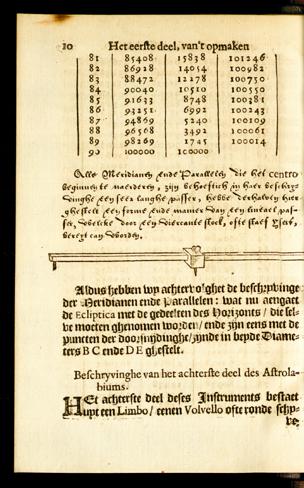 10 Het eerste deel, van't opmaken
81 85408 15838 101246
82 86928 14054 100982
83 88472 12278 100750
84 90040 10510 100550
85 91633 8748 100381
86 93251 6992 100243
87 94869 5240 100109
88 96568 3492 100061
89 98269 1745 100014
90 100000 100000
Alle Meridianen ende Parallelen die het centro
beginnen te naerderen, zijn behoeftich in haer beschry-
vinghe een seer langhe passer, hebbe derhalven hier
ghestelt een forme ende manier van een lineael pas-
ser, welcke door een viercante stock, ofte staef yser,
bereyt can worden.
Aldus hebben wy achtervolghet de beschryvinge
der Meridianen ende Parallelen: wat nu aengaet
de Ecliptica met de gedeelten des Horizonts / die sel-
ve moeten ghenomen worden / ende zijn eens met de
puncten der doorsnijdinghe / zijnde in beyde Diame-
ters B C ende D E ghestelt.
Beschryvinghe van het achterste deel des Astrola-
biums.
HEt achterste deel deses Instruments bestaet
uyt een Limbo / eenen Volvello ofte ronde schy-
ve;